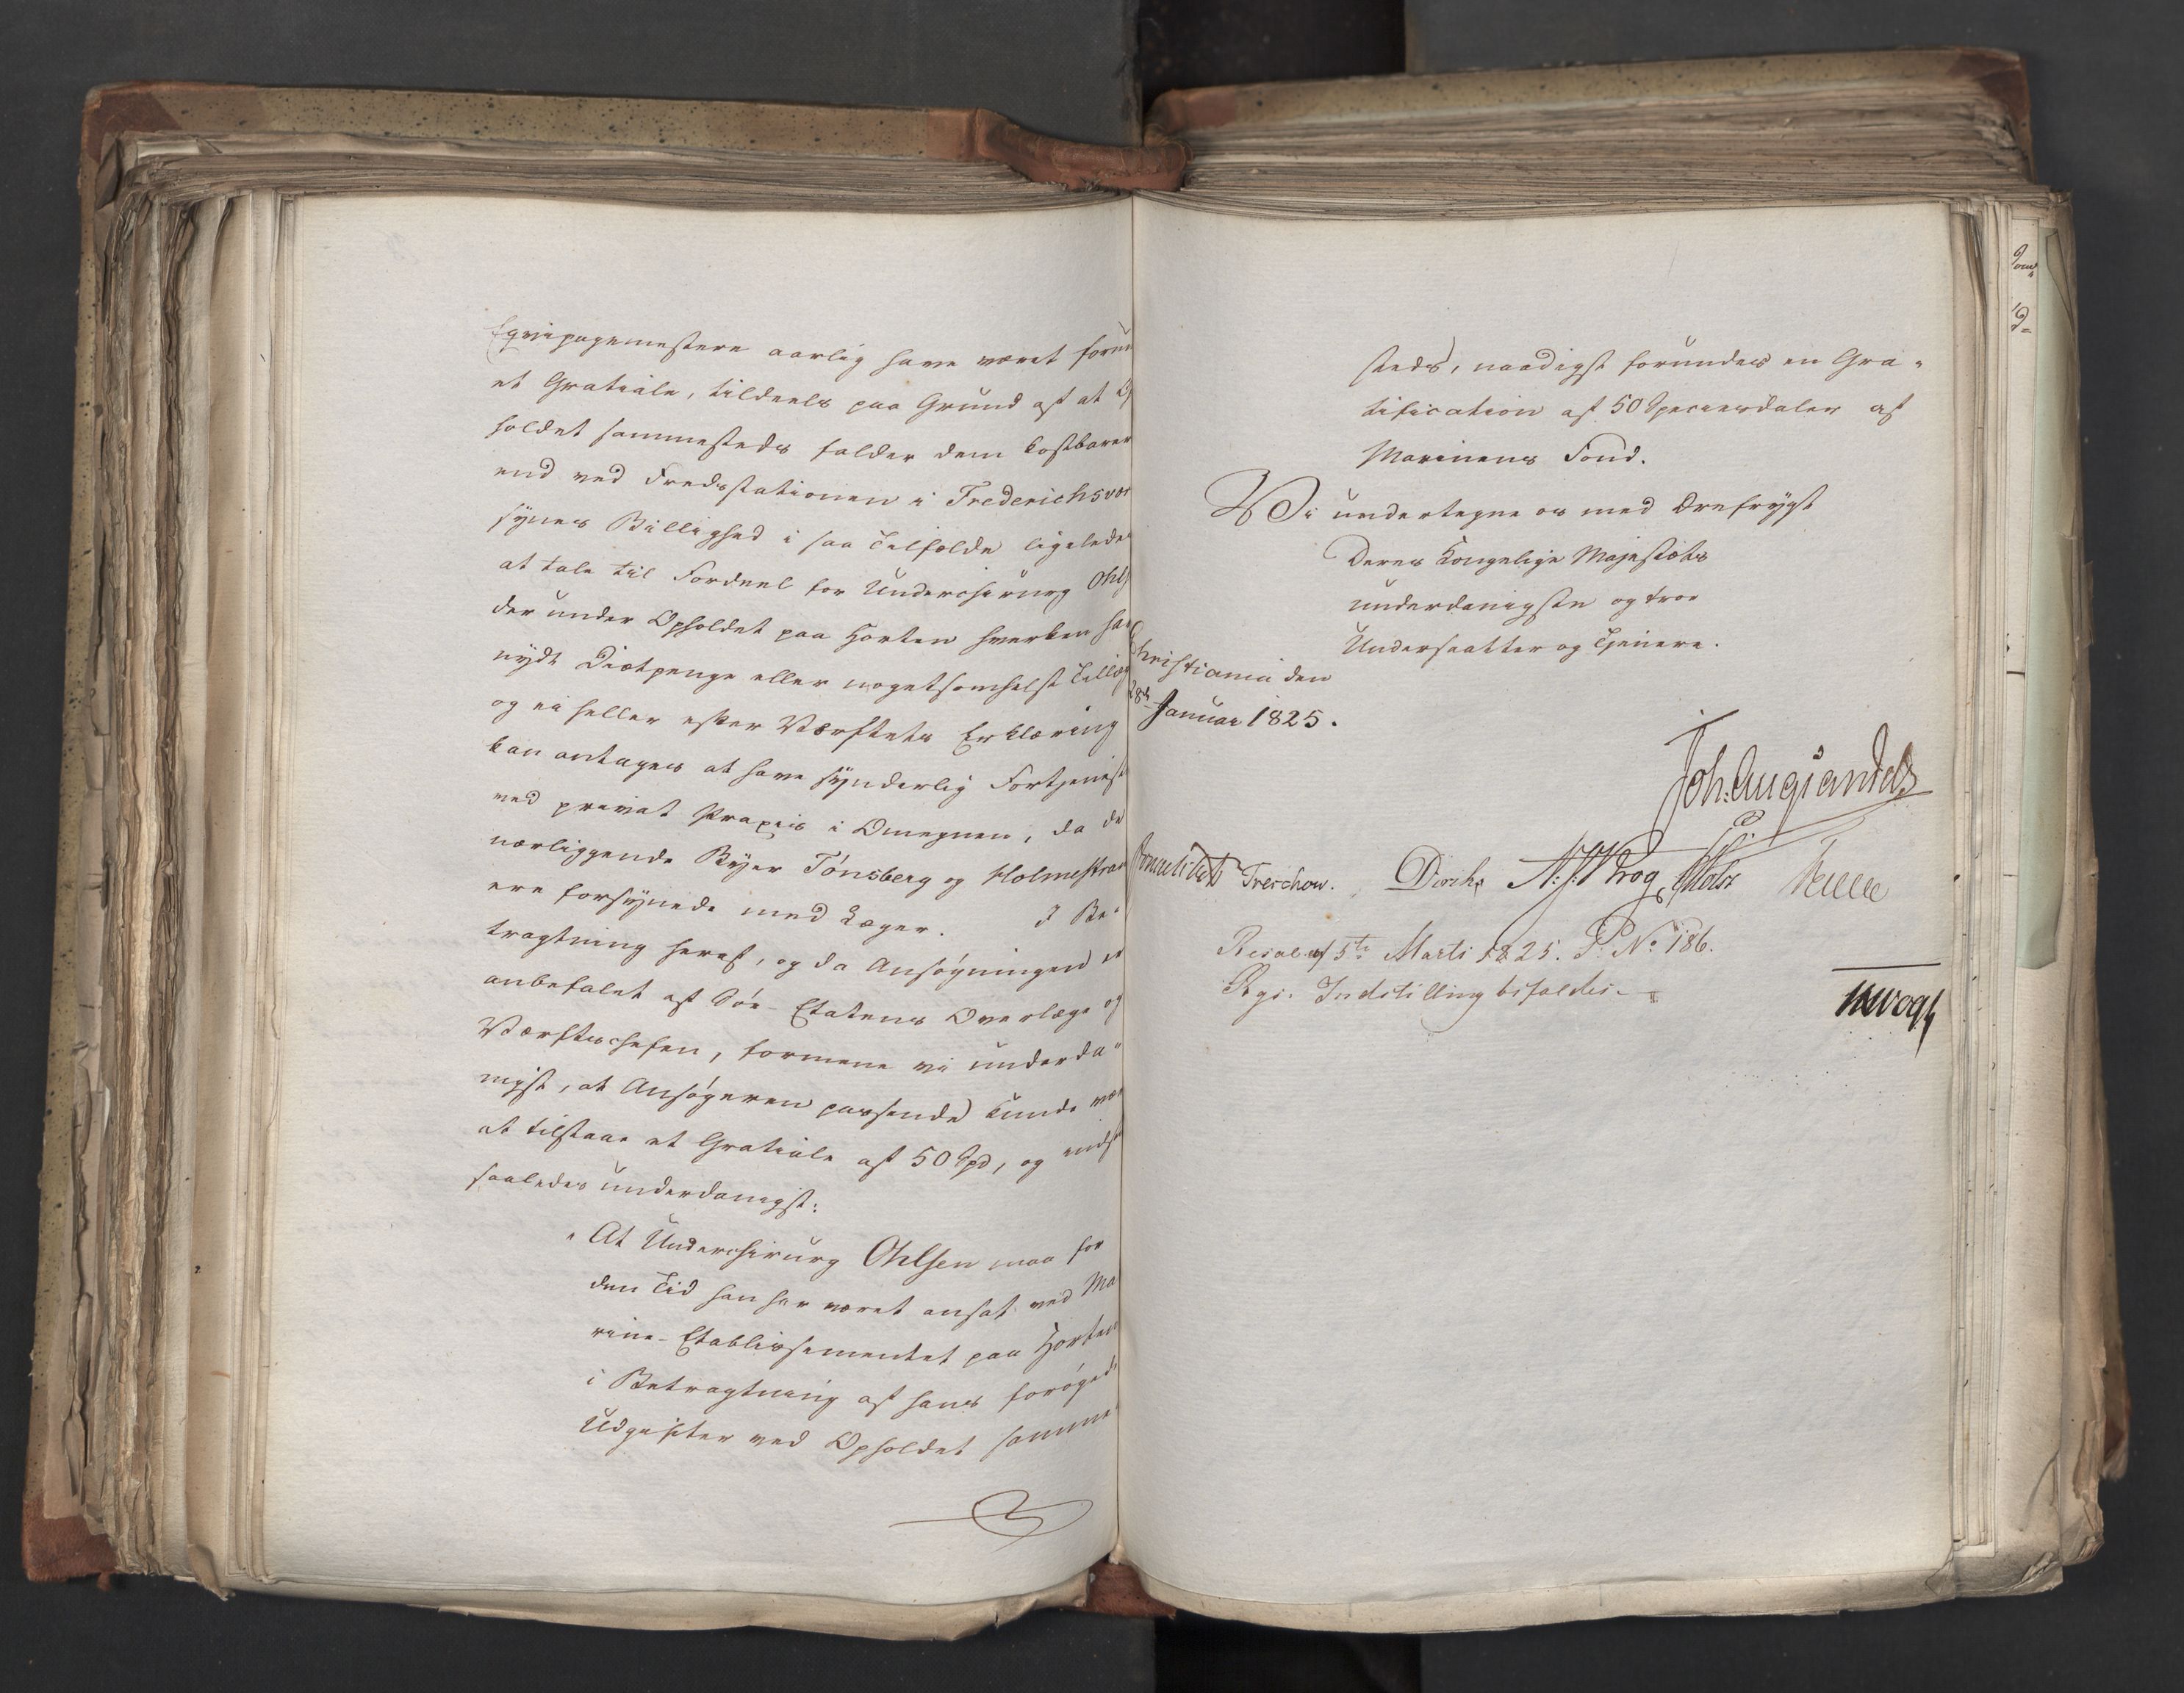 Eqvipagemestere aarlig have været forun
et Gratiale, tildeels paa Grund af at Op
holdet sammesteds falder dem kostbarer
end ved Fredsstationen i Frederichsvær
synes Billighed i saa Tilfælde ligeledes
at tale til Fordeel for Underchirurg Ohls
der under Opholdet paa Horten hverken har
nydt Diætpenge eller nogetsomhelst Tillæg
og ei heller efter Værftets Erklæring
kan antages at have synderlig Fortjenest
ved privat Praxis i Omegnen, da de
nærliggende Byer Tönsberg og Holmestran
ere forsynede med Læger. I Be-
tragtning heraf, og da Ansøgningen er
anbefalet af Søe-Etatens Overlæge og
Værftschefen, formene vi underda-
nigst, at Ansøgeren passende kunde vær
at tilstaae et Gratiale af 50 Spd, og indst
saaledes underdanigst:
At Underchirurg Ohlsen maa for
den Tid han har været ansat ved Ma
rine-Etablissementet paa Horten
i Betragtning af hans forøgede
Udgifter ved Opholdet samme
steds, naadigst forundes en Gra-
tification af 50 Speciesdaler af
Marinens Fond.
Vi undertegne os med Ærefrygt
Deres Kongelige Majestæts
underdanigste og troe
Undersaatter og Tjenere.
Christiania den
28de Januar 1825.
Joh: Aug: Sandels
Treschow. Diriks N: J: Krog Holst
Resol. af 5te Marti 1825. P: No 186.
Rgs. Indstilling bifaldes.
Vogt